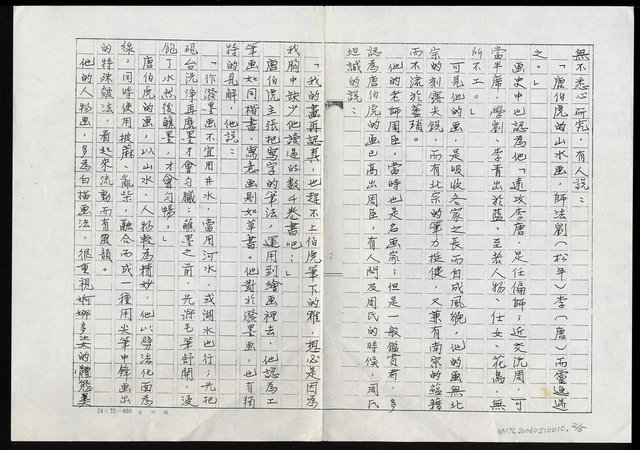 無不悉心研究，有人說：
「唐伯虎的山水画，師法劉（松年）李（唐）而靈逸過
之。」
画史中也認為他「遠攻李唐，足任偏師；近交沈周，可
當半席，學劉、李青出於藍，至若人物、仕女、花鳥，無
所不工。」
可見他的画，是吸收各家之長而自成風貌，他的画無北
宗的刻露尖銳，而有北宗的筆力挺健，又兼有南宗的蘊藉
而不流於萎瑣。
他的老師周臣，當時也是名画家；但是一般鑑賞者，多
認為唐伯虎的画已高出周臣，有人問及周氏的時候，周氏
坦誠的說：
「我的畫再認真，也趕不上伯虎筆下的雅，想必是因為
我胸中缺少他讀過的數千卷書吧！」
唐伯虎主張把寫字的筆法，運用到繪畫裡去，他認為工
筆画如同楷書，寫意画則如草書。他對於潑墨画，也有獨
特的見解，他說：
「作潑墨画不宜用井水，當用河水，或湖水也行；先把
硯台洗淨再磨墨，才會勻膩；蘸墨之前，先將毛筆舒開，浸
飽了水然後蘸墨，才會勻暢。」
唐伯虎的画，以山水、人物較為精妙，他以劈法化面為
線，同時使用披麻、亂柴，融合而成一種用尖筆中鋒画出
的特殊皴法，看起來流動而有風韻。
他的人物画，多為白描画法，很重視婀娜多姿的體態美
24×25=600
NMTL20060210010. 2/5